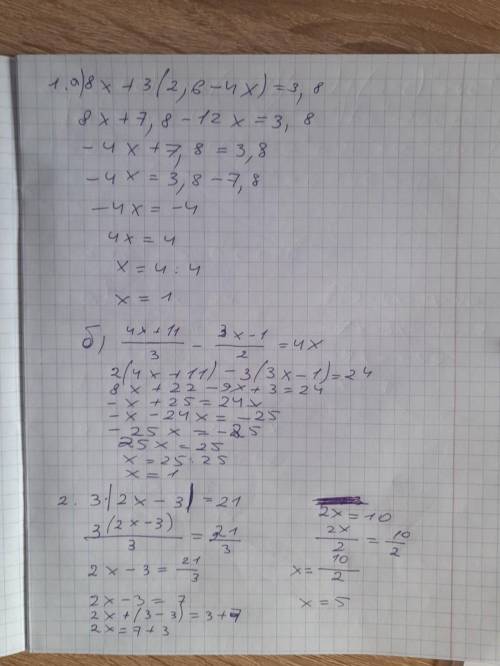 1. a) 8x + 3(2,6 - 4x) = 3,8
8x + 7,8 - 12x = 3,8
- 4x + 7,8 = 3,8
- 4x = 3,8 - 7,8
- 4x = - 4
4x = 4
x = 4 : 4
x = 1
б) (4x + 11)/3 - (3x - 1)/2 = 4x
2(4x + 11) - 3(3x - 1) = 24
8x + 22 - 9x + 3 = 24
- x + 25 = 24x
- x - 24x = - 25
- 25x = - 25
25x = 25
x = 25 : 25
x = 1
2. 3·(2x - 3) = 21
3(2x - 3)/3 = 21/3
2x - 3 = 21/3
2x - 3 = 7
2x + (3 - 3) = 3 + 7
2x = 7 + 3
2x = 10
2x/2 = 10/2
x = 10/2
x = 5